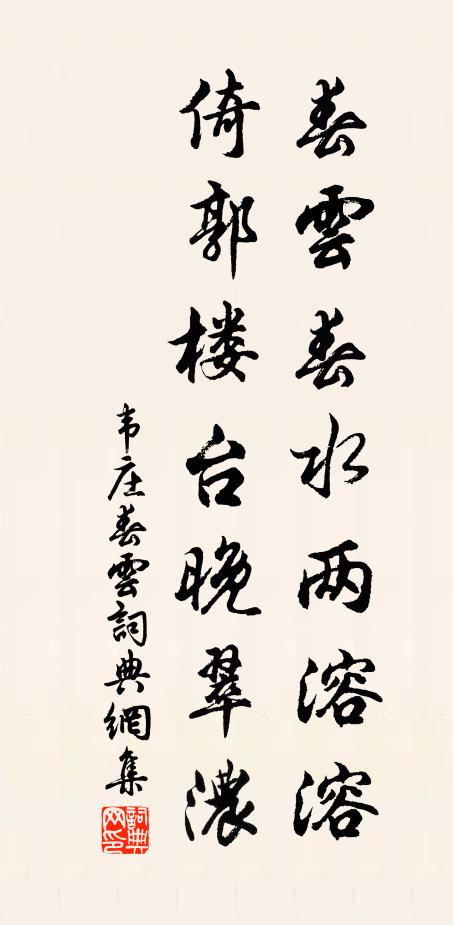 春雲春水两溶溶
倚郭楼台晚翠濃
韦庄春雲詞典網集
詞典网印